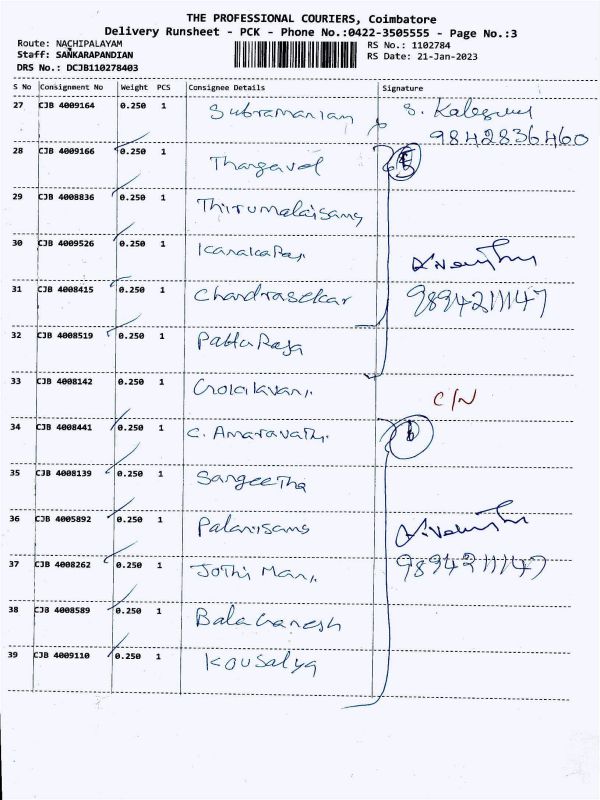 THE PROFESSIONAL COURIERS, Coimbatore
Delivery Runsheet - PCK - Phone No.:0422-3505555 - Page No.:3
Route: NACHIPALAYAM
RS No.: 1102784
Staff: SANKARAPANDIAN
RS Date: 21-Jan-2023
DRS No.: DCJB110278403
S No Consignment No Weight PCS Consignee Details Signature
27 CJB 4009164 0.250 1 Subramaniam S.
9842836460
28 CJB 4009166 0.250 1 Thangavel
29 CJB 4008836 0.250 1 Thirumalaisamy
30 CJB 4009526 0.250 1 Kanakaraj
31 CJB 4008415 0.250 1 Chandrasekar 9894211147
32 CJB 4008519 0.250 1 Pattu Raja
33 CJB 4008142 0.250 1 C/N
34 CJB 4008441 0.250 1 C. Amaravathi
35 CJB 4008139 0.250 1 Sangeetha
36 CJB 4005892 0.250 1 Palanisamy
37 CJB 4008262 0.250 1 Jothi Mani 9894211147
38 CJB 4008589 0.250 1 Bala Ganesh
39 CJB 4009110 0.250 1 Kousalya